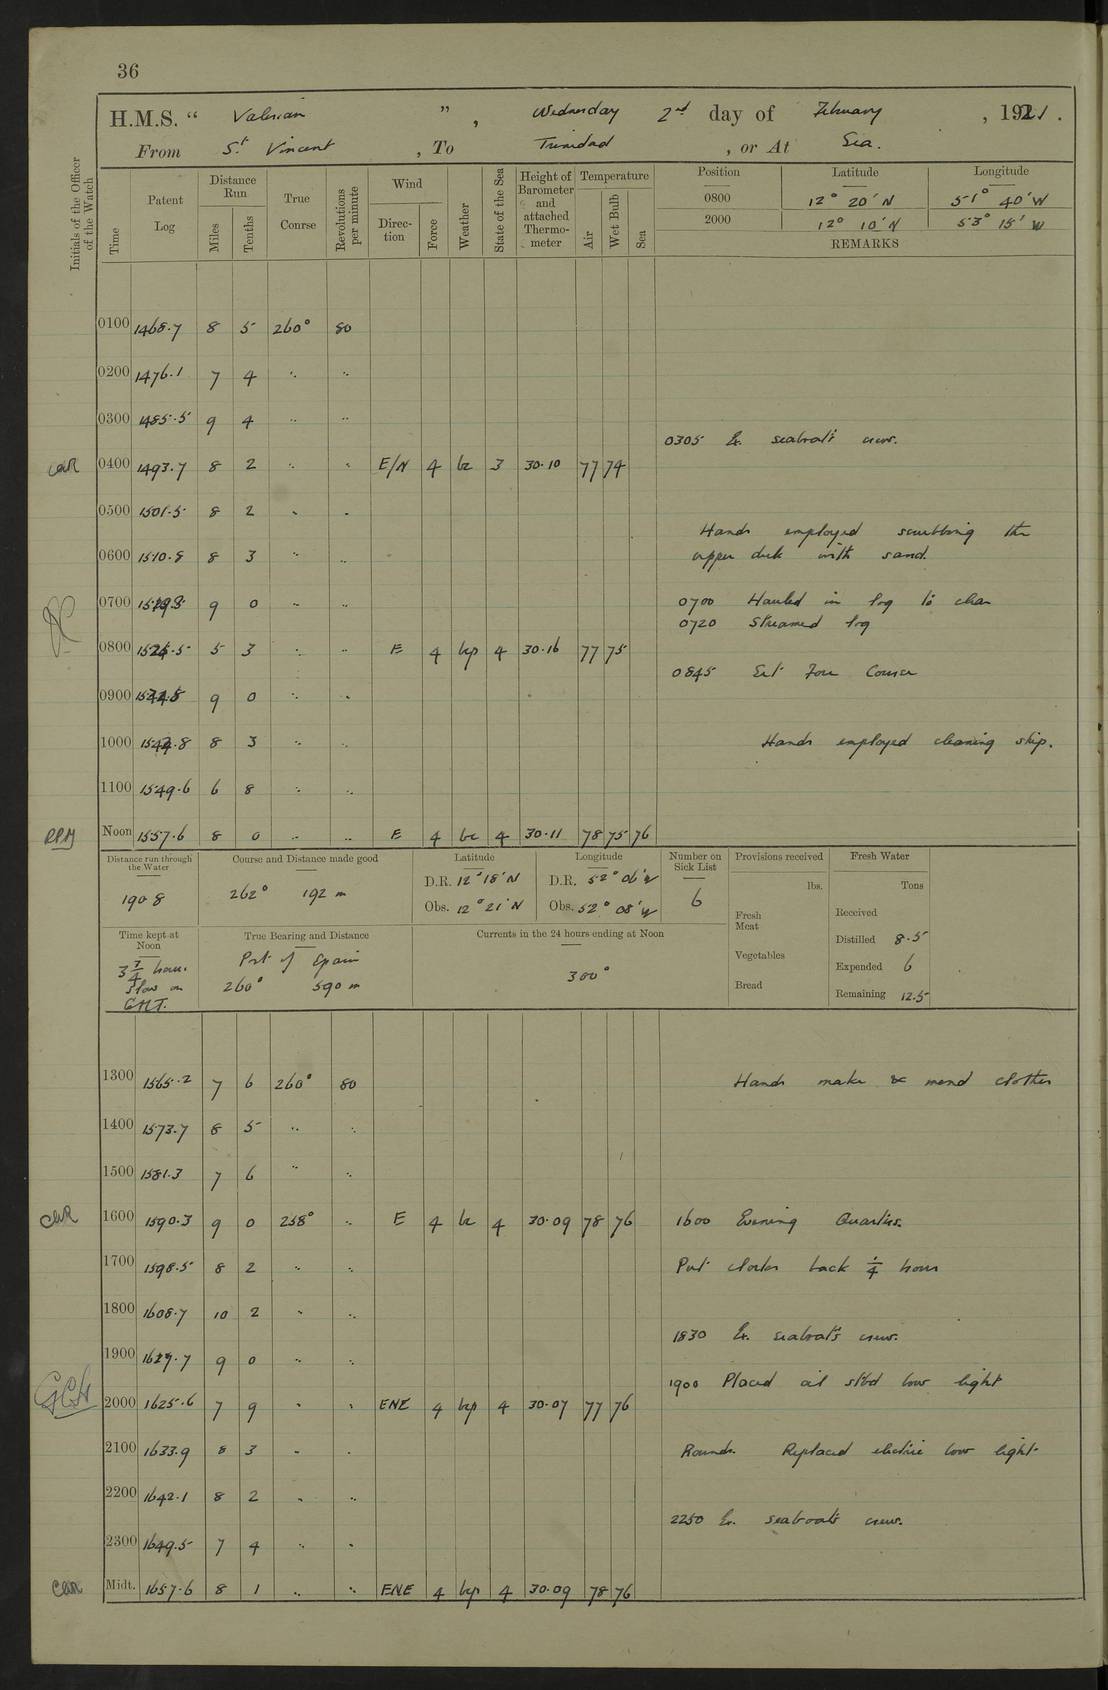 36
H.M.S. " Valerian ", Wednesday 2nd day of February, 1921.
From St. Vincent, To Trinidad, or At Sea.
Initials of the Officer of the Watch
Time
Patent Log
Distance Run
Miles
Tenths
True Course
Revolutions per minute
Wind
Direction
Force
Weather
State of the Sea
Height of Barometer and attached Thermometer
Temperature
Air
Wet Bulb
Sea
Position Latitude Longitude
0800 12° 20' N 51° 40' W
2000 12° 10' N 53° 15' W
REMARKS
0100 1468.7 8 5 260° 80
0200 1476.1 7 4 " "
0300 1485.5 9 4 " "
0305 Ex. seaboat's crew.
0400 1493.7 8 2 " " E/N 4 bc 3 30.10 77 74
0500 1501.5 8 2 " "
Hands employed scrubbing the
0600 1510.8 8 3 " " upper deck with sand.
0700 9 0 " " 0700 Hauled in log to clear
0720 Streamed log
0800 5 3 " " E 4 bcp 4 30.16 77 75
0845 Ext Fore Course
0900 9 0 " "
1000 8 3 " " Hands employed cleaning ship.
1100 1549.6 6 8 " "
RPM Noon 1557.6 8 0 " " E 4 bc 4 30.11 78 75 76
Distance run through the Water
190 8
Course and Distance made good
262° 192 m
Latitude
D.R. 12° 18' N
Obs. 12° 21' N
Longitude
D.R. 52° 06' W
Obs. 52° 08' W
Number on Sick List
6
Provisions received
lbs.
Fresh Meat
Vegetables
Bread
Fresh Water
Tons
Received
Distilled 8.5
Expended 6
Remaining 12.5
Time kept at Noon
3 3/4 hours
slow on
G.M.T.
True Bearing and Distance
Port of Spain
260° 590 m
Currents in the 24 hours ending at Noon
300°
1300 1565.2 7 6 260° 80 Hands make & mend clothes
1400 1573.7 8 5 " "
1500 1581.3 7 6 " "
1600 1590.3 9 0 258° " E 4 bc 4 30.09 78 76 1600 Evening Quarters.
1700 1598.5 8 2 " " Put clocks back 1/4 hour
1800 1608.7 10 2 " "
1830 Ex. seaboat's crew.
1900 9 0 " "
1900 Placed oil stbd bow light
2000 1625.6 7 9 " " ENE 4 bcp 4 30.07 77 76
2100 1633.9 8 3 " " Rounds. Replaced electric bow light
2200 1642.1 8 2 " "
2250 Ex. seaboat's crew.
2300 1649.5 7 4 " "
Midt. 1657.6 8 1 " " ENE 4 bcp 4 30.09 78 76